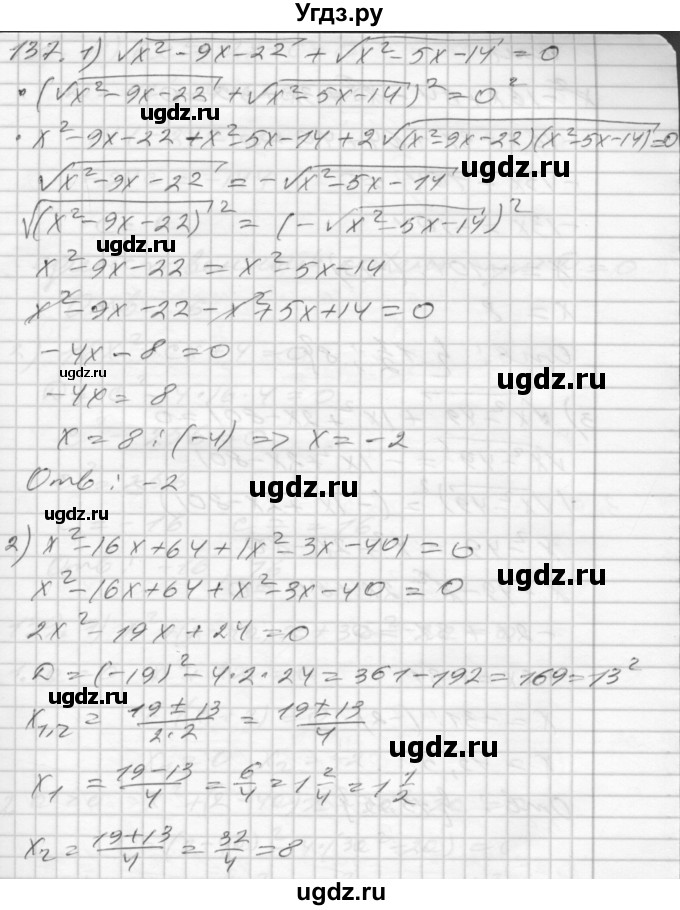 Угдз.ру
137. 1) √(x² - 9x - 22) + √(x² - 5x - 14) = 0
• (√(x² - 9x - 22) + √(x² - 5x - 14))² = 0²
ugdz.ru
• x² - 9x - 22 + x² - 5x - 14 + 2√((x² - 9x - 22)(x² - 5x - 14)) = 0
√(x² - 9x - 22) = -√(x² - 5x - 14)
ugdz.ru
√(x² - 9x - 22)² = (-√(x² - 5x - 14))²
ugdz.ru
x² - 9x - 22 = x² - 5x - 14
x² - 9x - 22 - x² + 5x + 14 = 0
-4x - 8 = 0
ugdz.ru
ugdz.ru
-4x = 8
x = 8 : (-4) => x = -2
Отв: -2
ugdz.ru
ugdz.ru
2) x² - 16x + 64 + |x² - 3x - 40| = 0
x² - 16x + 64 + x² - 3x - 40 = 0
2x² - 19x + 24 = 0
D = (-19)² - 4·2·24 = 361 - 192 = 169 = 13²
ugdz.ru
x₁,₂ = (19 ± 13)/(2·2) = (19 ± 13)/4
ugdz.ru
x₁ = (19 - 13)/4 = 6/4 = 1 2/4 = 1 1/2
x₂ = (19 + 13)/4 = 32/4 = 8
ugdz.ru